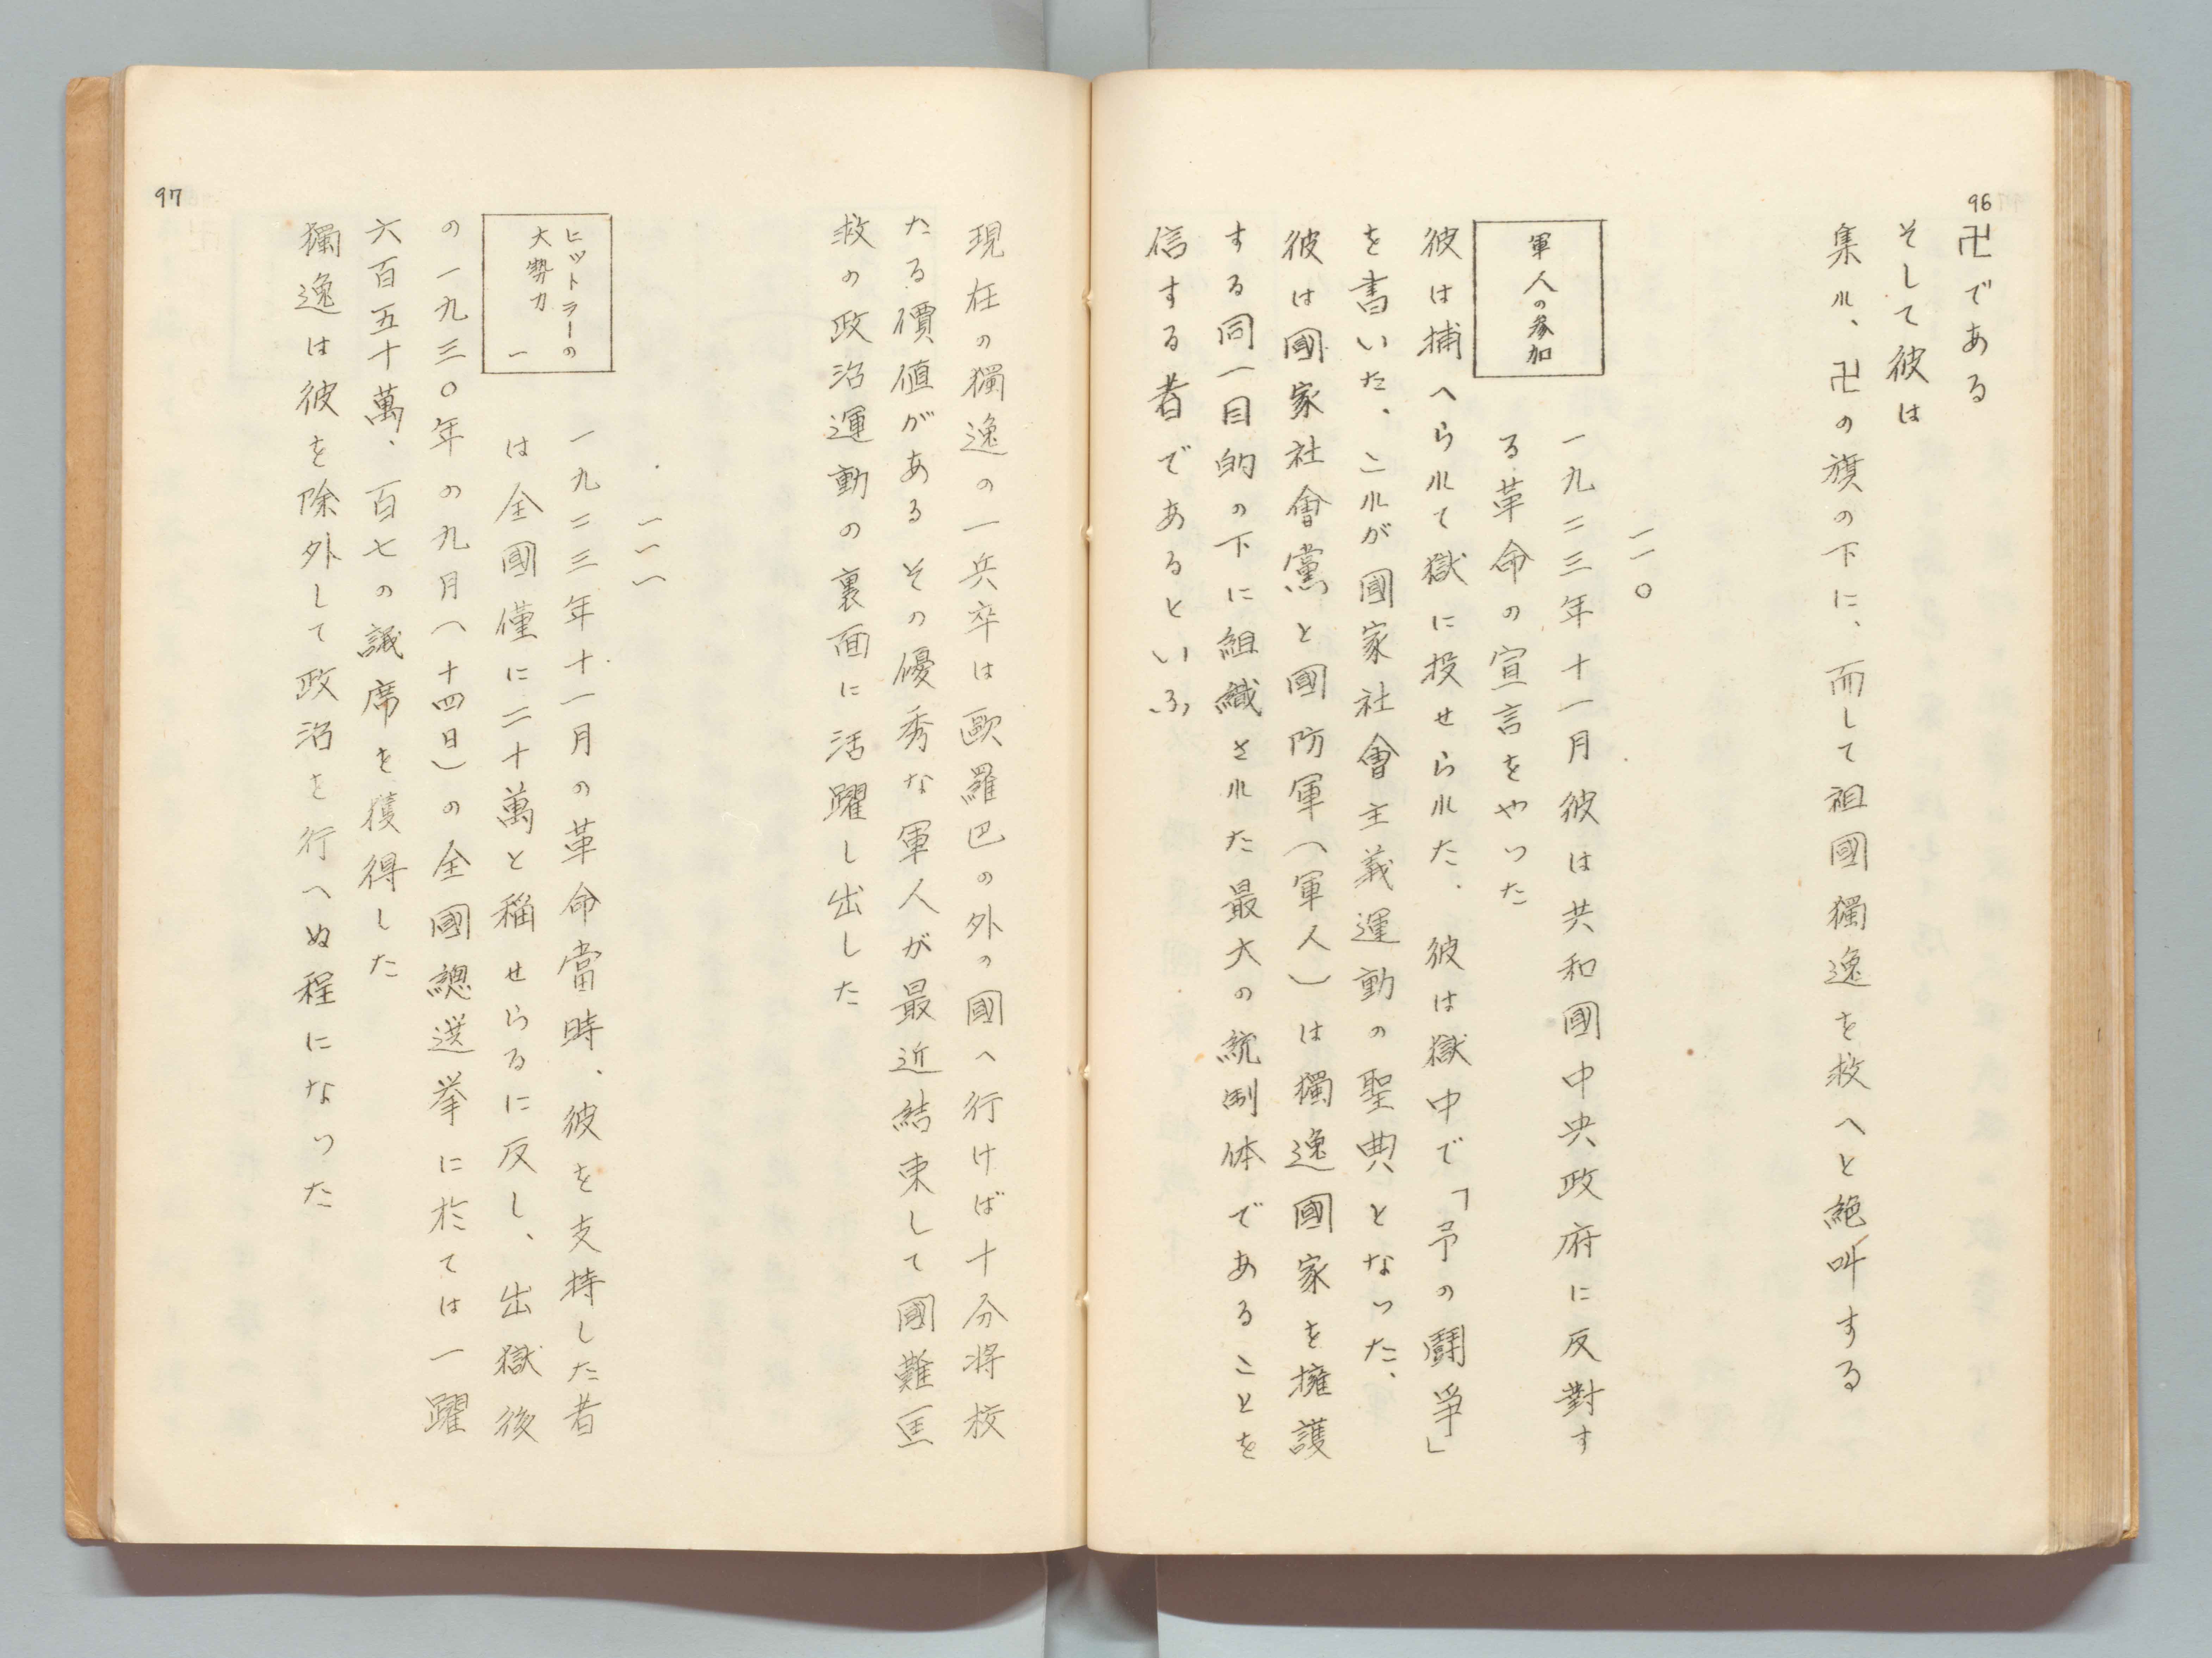 96
卍である
そして彼は
集れ、卍の旗の下に、而して祖國獨逸を救へと絶叫する
一一〇
軍人の参加
一九二三年十一月彼は共和國中央政府に反對す
る革命の宣言をやつた
彼は捕へられて獄に投せられた、彼は獄中で「予の鬪爭」
を書いた、これが國家社會主義運動の聖典となつた、
彼は國家社會黨と國防軍（軍人）は獨逸國家を擁護
する同一目的の下に組織された最大の統制体であることを
信する者であるといふ
97
現在の獨逸の一兵卒は歐羅巴の外の國へ行けば十分將校
たる價値がある その優秀な軍人が最近結束して國難匡
救の政治運動の裏面に活躍し出した
一一一
ヒットラーの
大勢力 一
一九二三年十一月の革命當時、彼を支持した者
は全國僅に二十萬と稱せらるに反し、出獄後
の一九三〇年の九月（十四日）の全國總選挙に於ては一躍
六百五十萬、百七の議席を獲得した
獨逸は彼を除外して政治を行へぬ程になつた